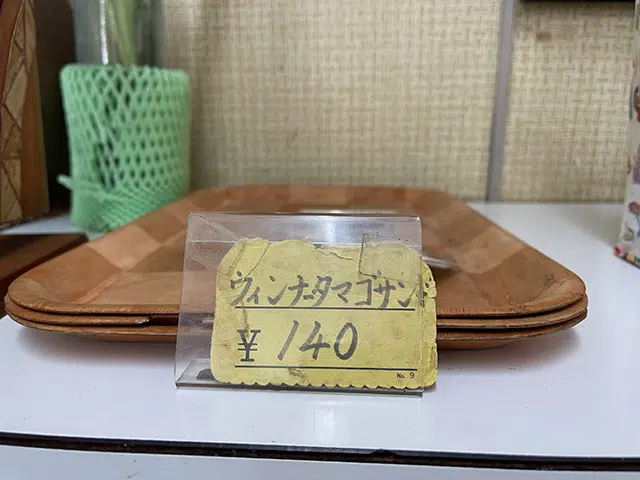 ウィンナータマゴサンド
¥ 140
No. 9